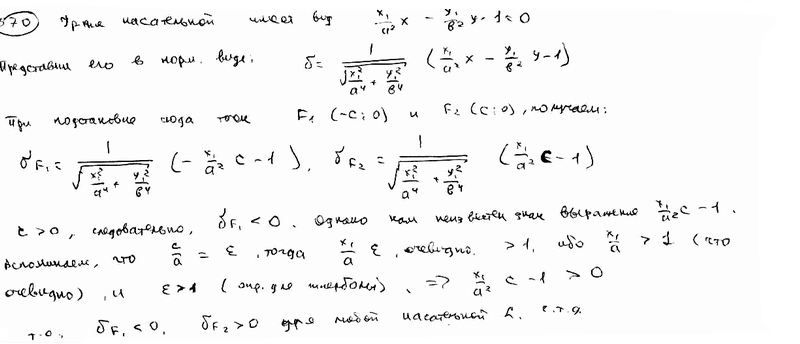 570) Ур-ние касательной имеет вид x₁/a² x − y₁/b² y − 1 = 0
Представим его в норм. виде: δ = 1/√(x₁²/a⁴ + y₁²/b⁴) (x₁/a² x − y₁/b² y − 1)
При подстановке сюда точек F₁ (−c; 0) и F₂ (c; 0), получаем:
δF₁ = 1/√(x₁²/a⁴ + y₁²/b⁴) (− x₁/a² c − 1), δF₂ = 1/√(x₁²/a⁴ + y₁²/b⁴) (x₁/a² c − 1)
c > 0, следовательно, δF₁ < 0. Однако нам неизвестен знак выражение x₁/a² c − 1.
Вспоминаем, что c/a = ε, тогда x₁/a ε, очевидно, > 1, ибо x₁/a > 1 (что
очевидно), и ε > 1 (опр. для гиперболы), => x₁/a² c − 1 > 0
т.о. δF₁ < 0, δF₂ > 0 для любой касательной L. ч.т.д.